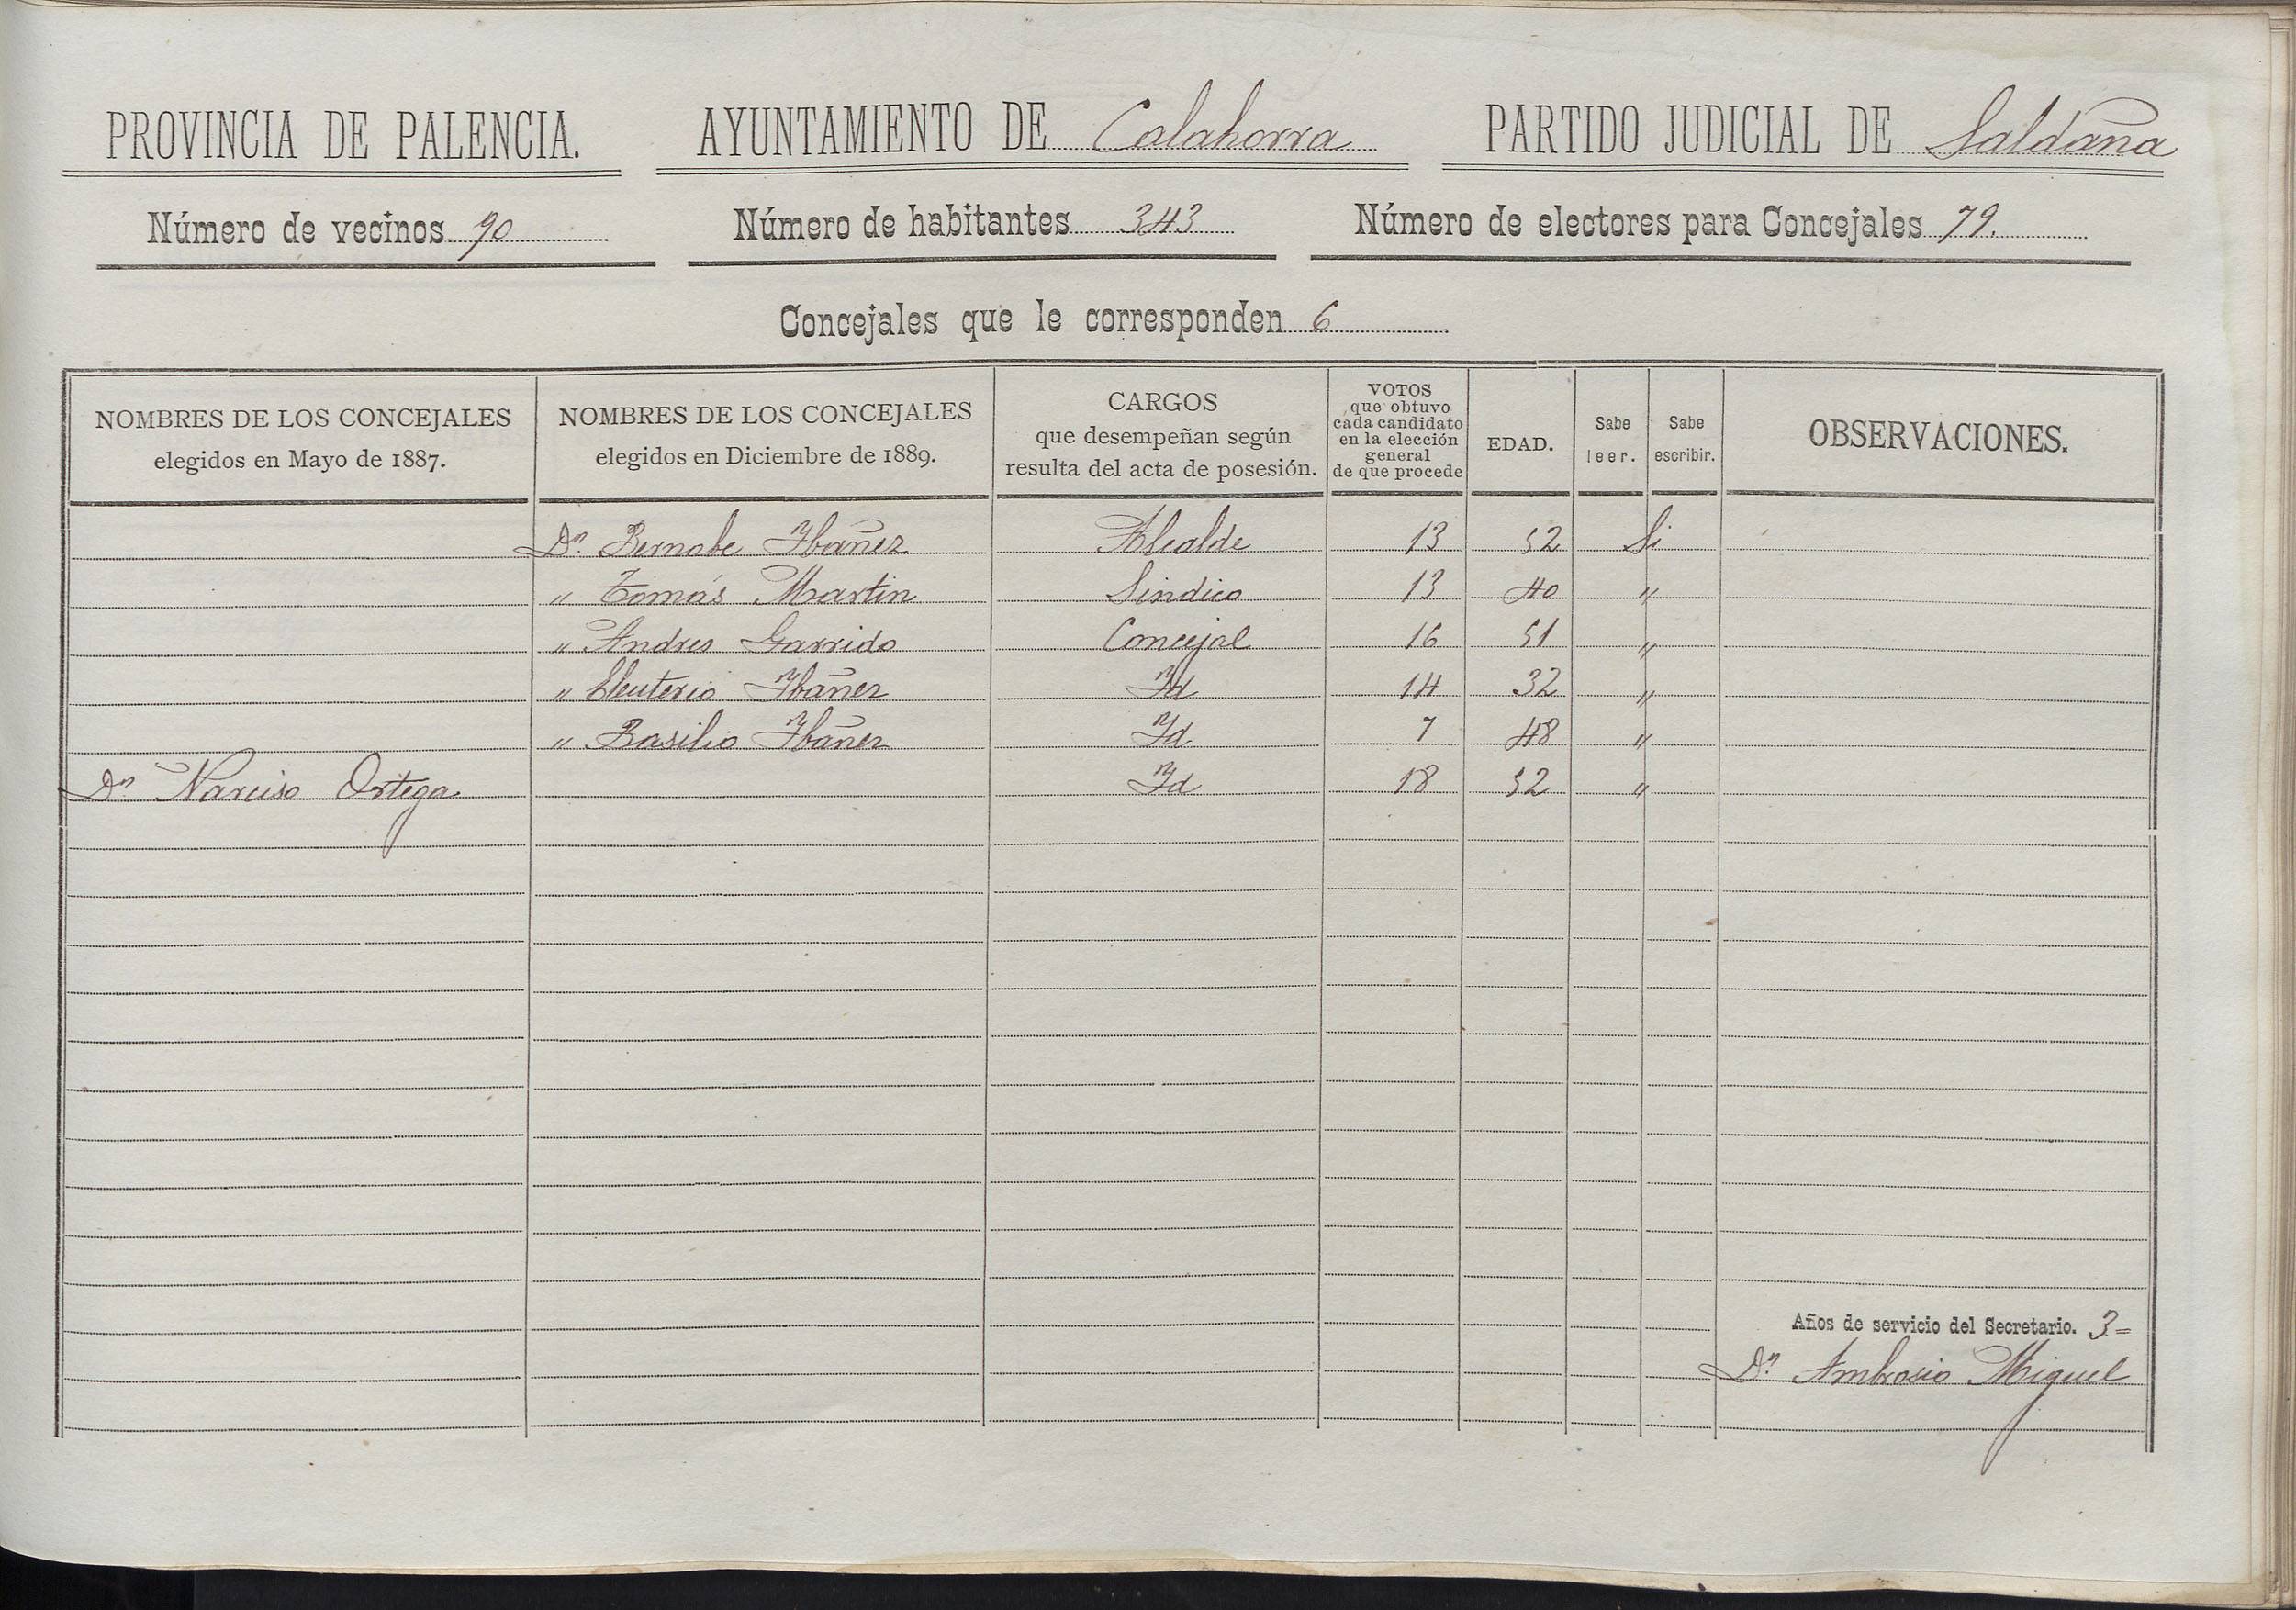 PROVINCIA DE PALENCIA. AYUNTAMIENTO DE Calahorra PARTIDO JUDICIAL DE Saldaña
Número de vecinos 90 Número de habitantes 343 Número de electores para Concejales 79.
Concejales que le corresponden 6
NOMBRES DE LOS CONCEJALES
elegidos en Mayo de 1887.
NOMBRES DE LOS CONCEJALES
elegidos en Diciembre de 1889.
CARGOS
que desempeñan según
resulta del acta de posesión.
VOTOS
que obtuvo
cada candidato
en la elección
general
de que procede
EDAD.
Sabe
leer.
Sabe
escribir.
OBSERVACIONES.
Dn. Bernabe Ybañez Alcalde 13 52 Si
" Tomás Martin Sindico 13 40 "
" Andres Garrido Concejal 16 51 "
" Eleuterio Ybañez Yd 14 32 "
" Basilio Ybañez Yd. 7 48 "
Dn. Narciso Ortega Yd 18 52 "
Años de servicio del Secretario. 3=
Dn. Ambrosio Miguel